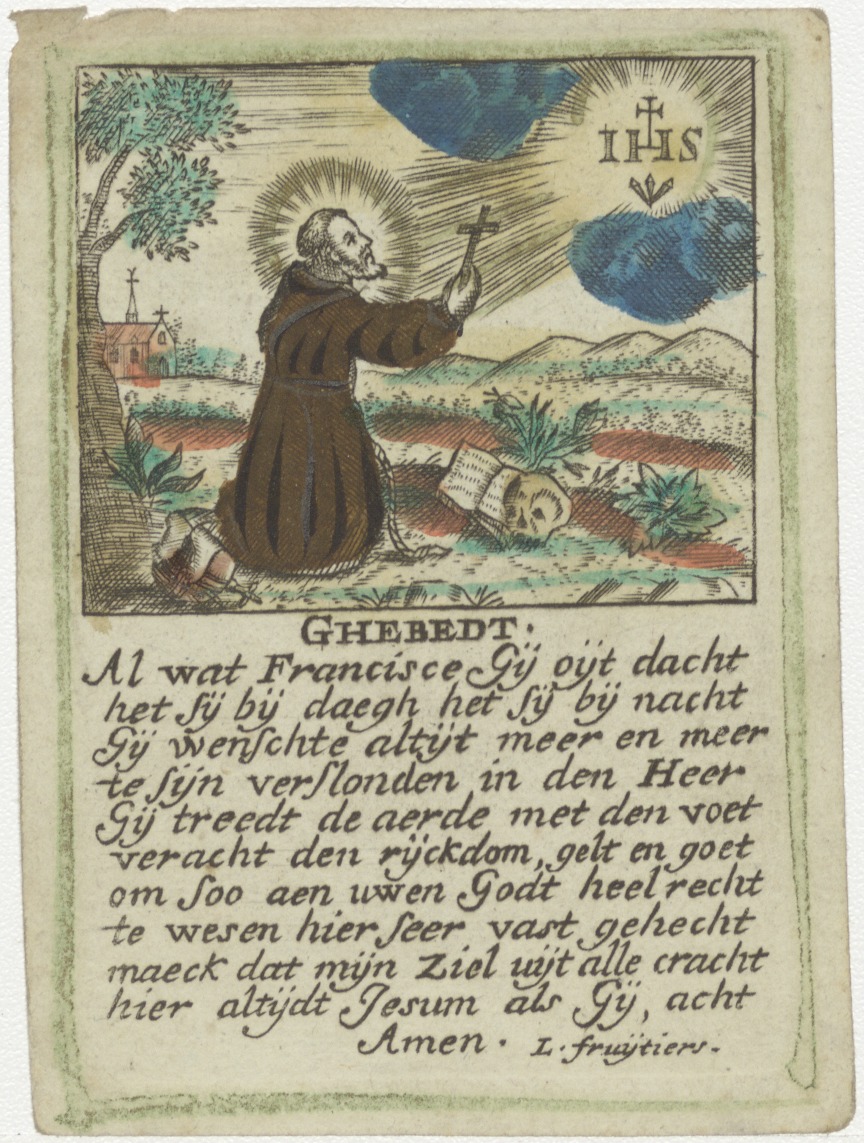 IHS
GHEBEDT.
Al wat Francisce Gij oijt dacht
het ſij bij daegh het ſij bij nacht
Gij wenſchte altijt meer en meer
te ſijn verſlonden in den Heer
Gij treedt de aerde met den voet
veracht den rijckdom, gelt en goet
om ſoo aen uwen Godt heel recht
te wesen hier ſeer vast gehecht
maeck dat mijn Ziel uijt alle cracht
hier altijdt Jesum als Gij, acht
Amen. L. fruijtiers.